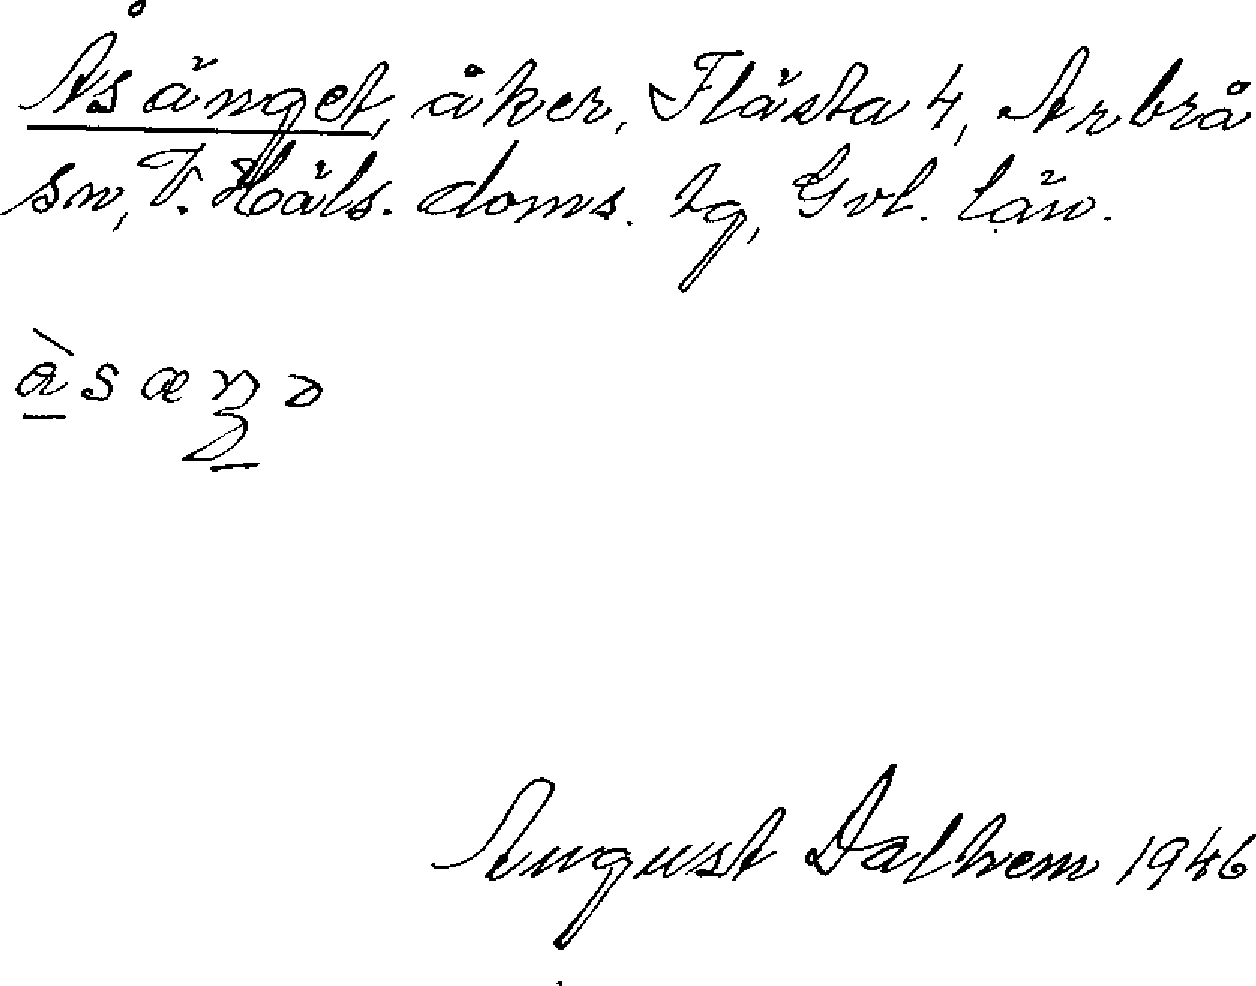 Åsänget, åker, Flästa 4, Arbrå
sn, V. Häls. doms. tg, Gvl. län.
August Dalhem 1946